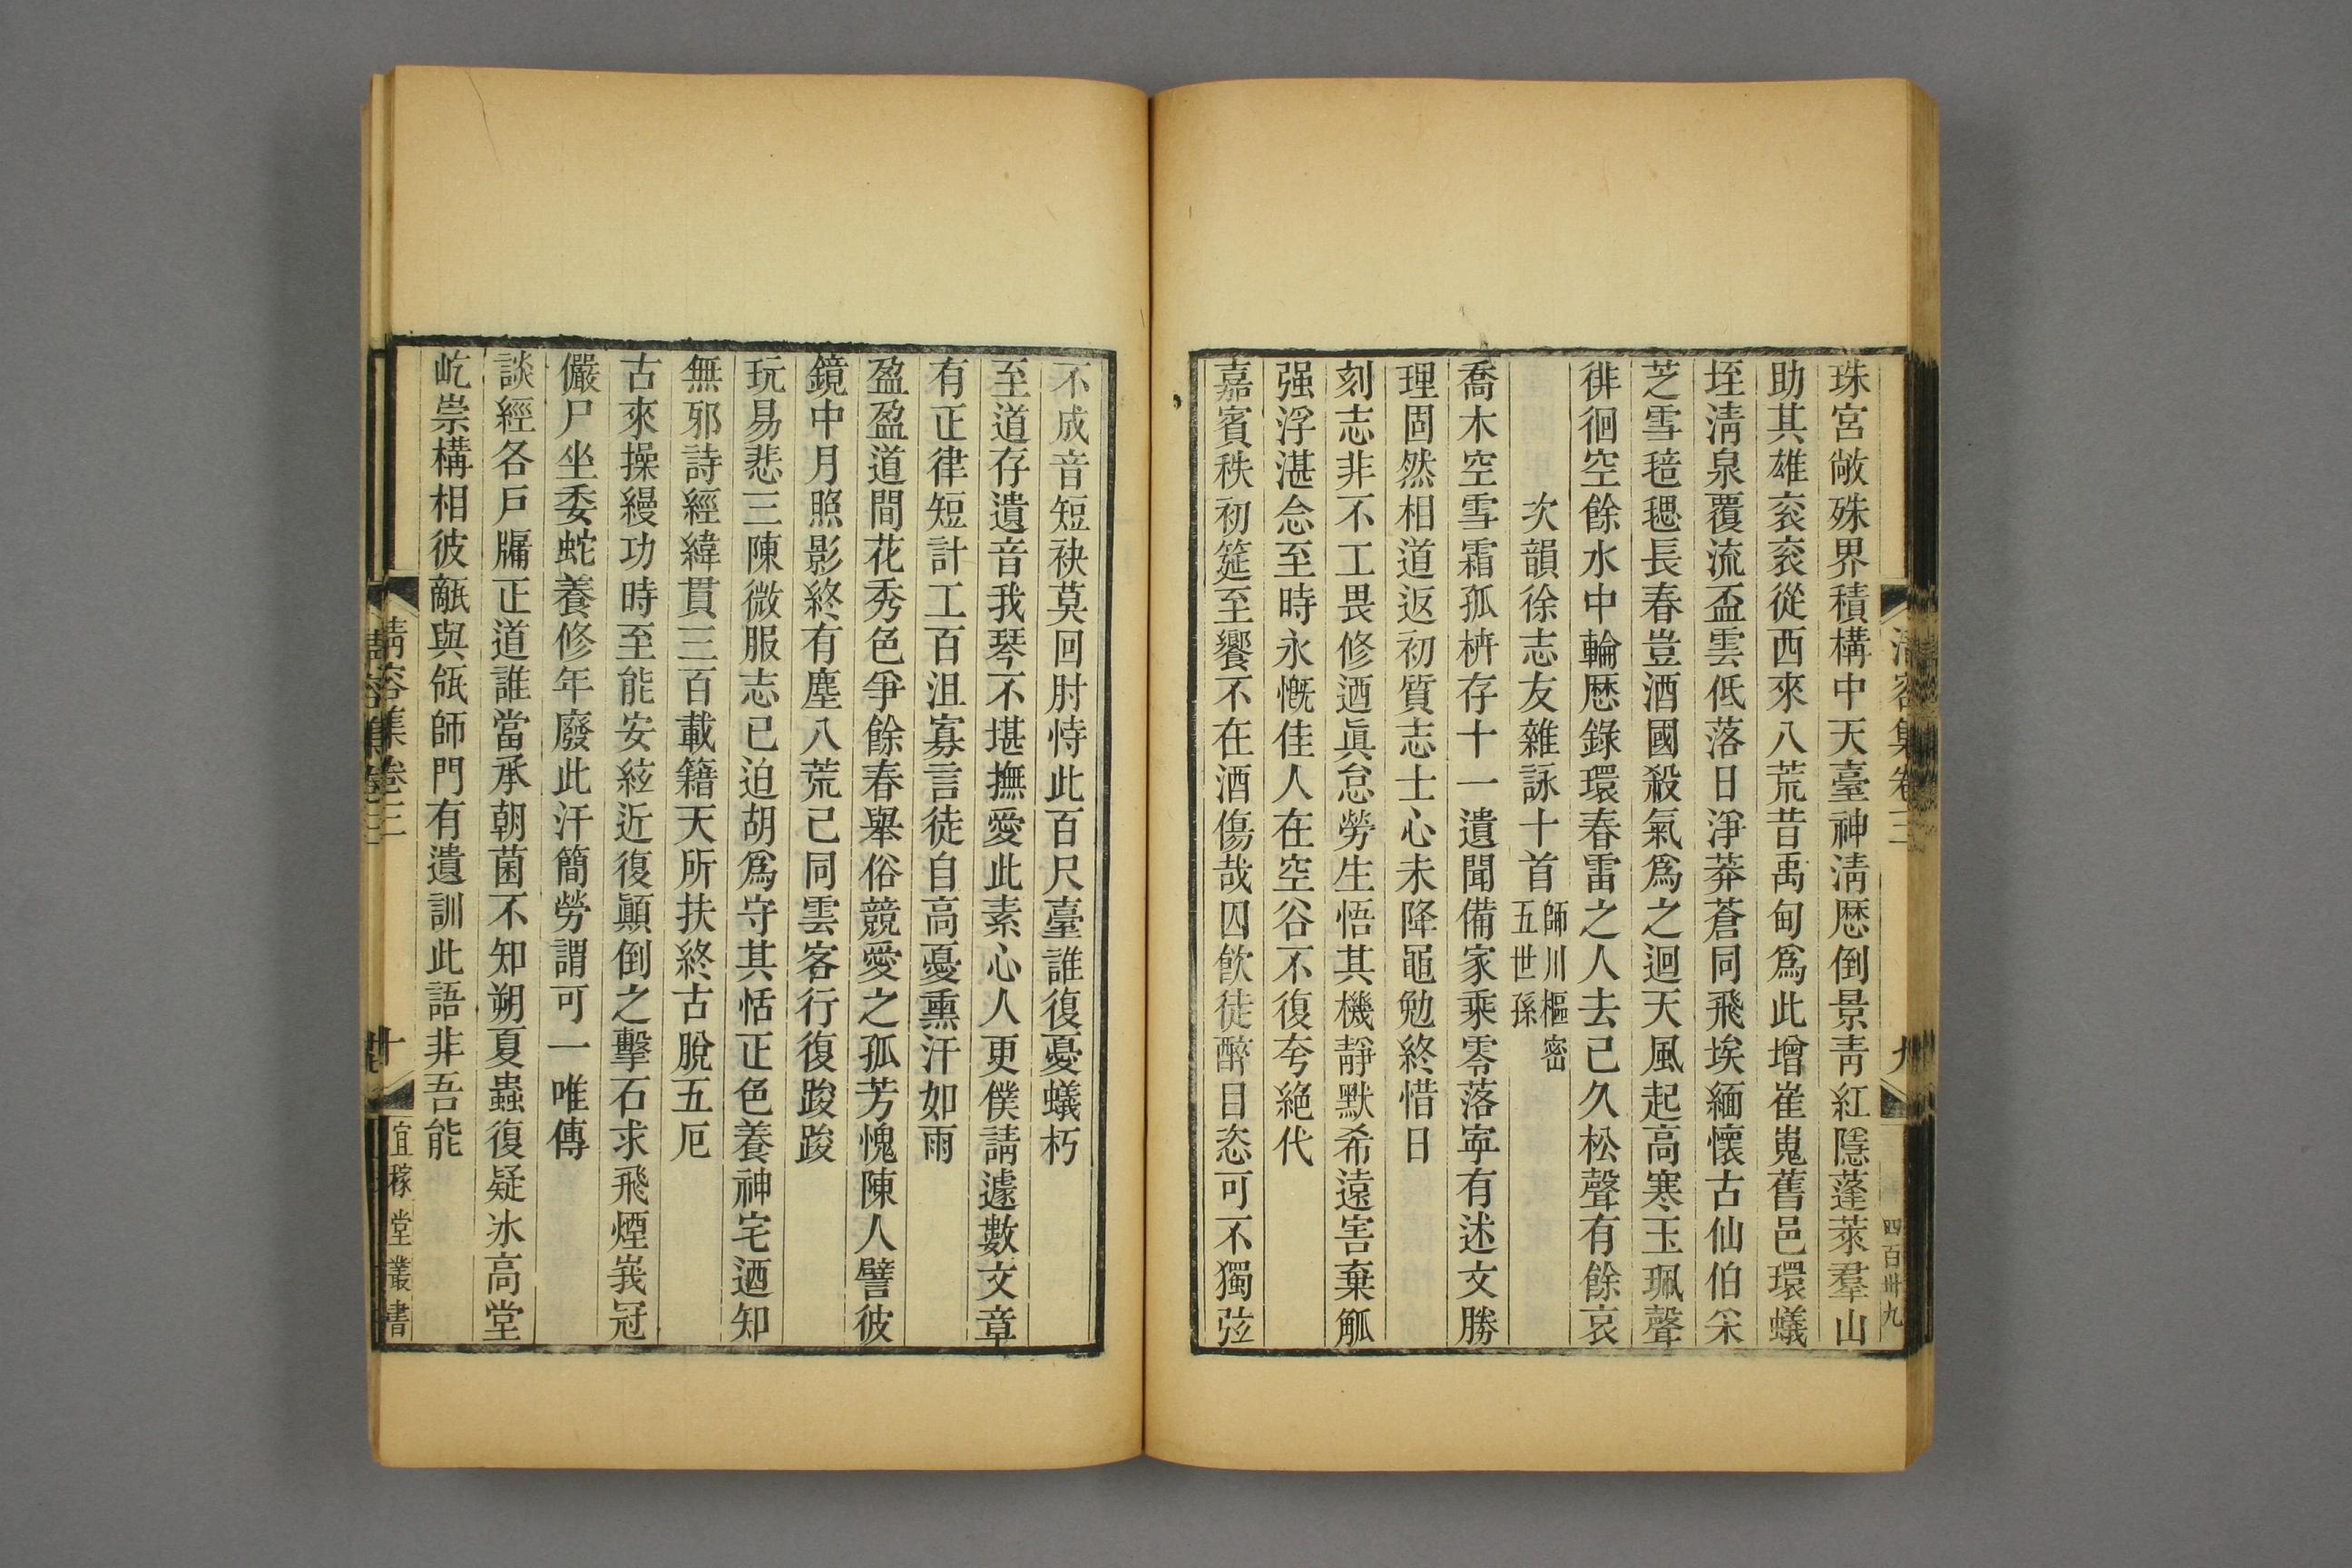 珠宮敞殊界積構中天臺神淸厯倒景靑紅隱蓬萊羣山
助其雄衮衮從西來八荒昔禹甸爲此增崔嵬舊邑環蟻
垤淸泉覆流盃雲低落日淨莽蒼同飛埃緬懷古仙伯采
芝雪毰毸長春豈酒國殺氣爲之迴天風起高寒玉珮聲
徘徊空餘水中輪厯錄環春雷之人去已久松聲有餘哀
次韻徐志友雜詠十首師川樞密五世孫
喬木空雪霜孤枿存十一遺聞備家乘零落寧有述文勝
理固然相道返初質志士心未降黽勉終惜日
刻志非不工畏修迺眞怠勞生悟其機靜默希遠害棄觚
强浮湛念至時永慨佳人在空谷不復夸絕代
嘉賓秩初筵至饗不在酒傷哉囚飮徒醉目恣可不獨弦
不成音短袂莫回肘恃此百尺臺誰復憂蟻朽
至道存遺音我琴不堪撫愛此素心人更僕請遽數文章
有正律短計工百沮寡言徒自高憂熏汗如雨
盈盈道間花秀色爭餘春舉俗競愛之孤芳愧陳人譬彼
鏡中月照影終有塵八荒己同雲客行復踆踆
玩易悲三陳微服志已迫胡爲守其恬正色養神宅迺知
無邪詩經緯貫三百載籍天所扶終古脫五厄
古來操縵功時至能安絃近復顚倒之擊石求飛煙峩冠
儼尸坐委蛇養修年廢此汗簡勞謂可一唯傳
談經各戶牖正道誰當承朝菌不知朔夏蟲復疑氷高堂
屹崇構相彼甋與瓴師門有遺訓此語非吾能
淸容集卷三
九
四百卅九
淸容集卷三
十
宜稼堂叢書